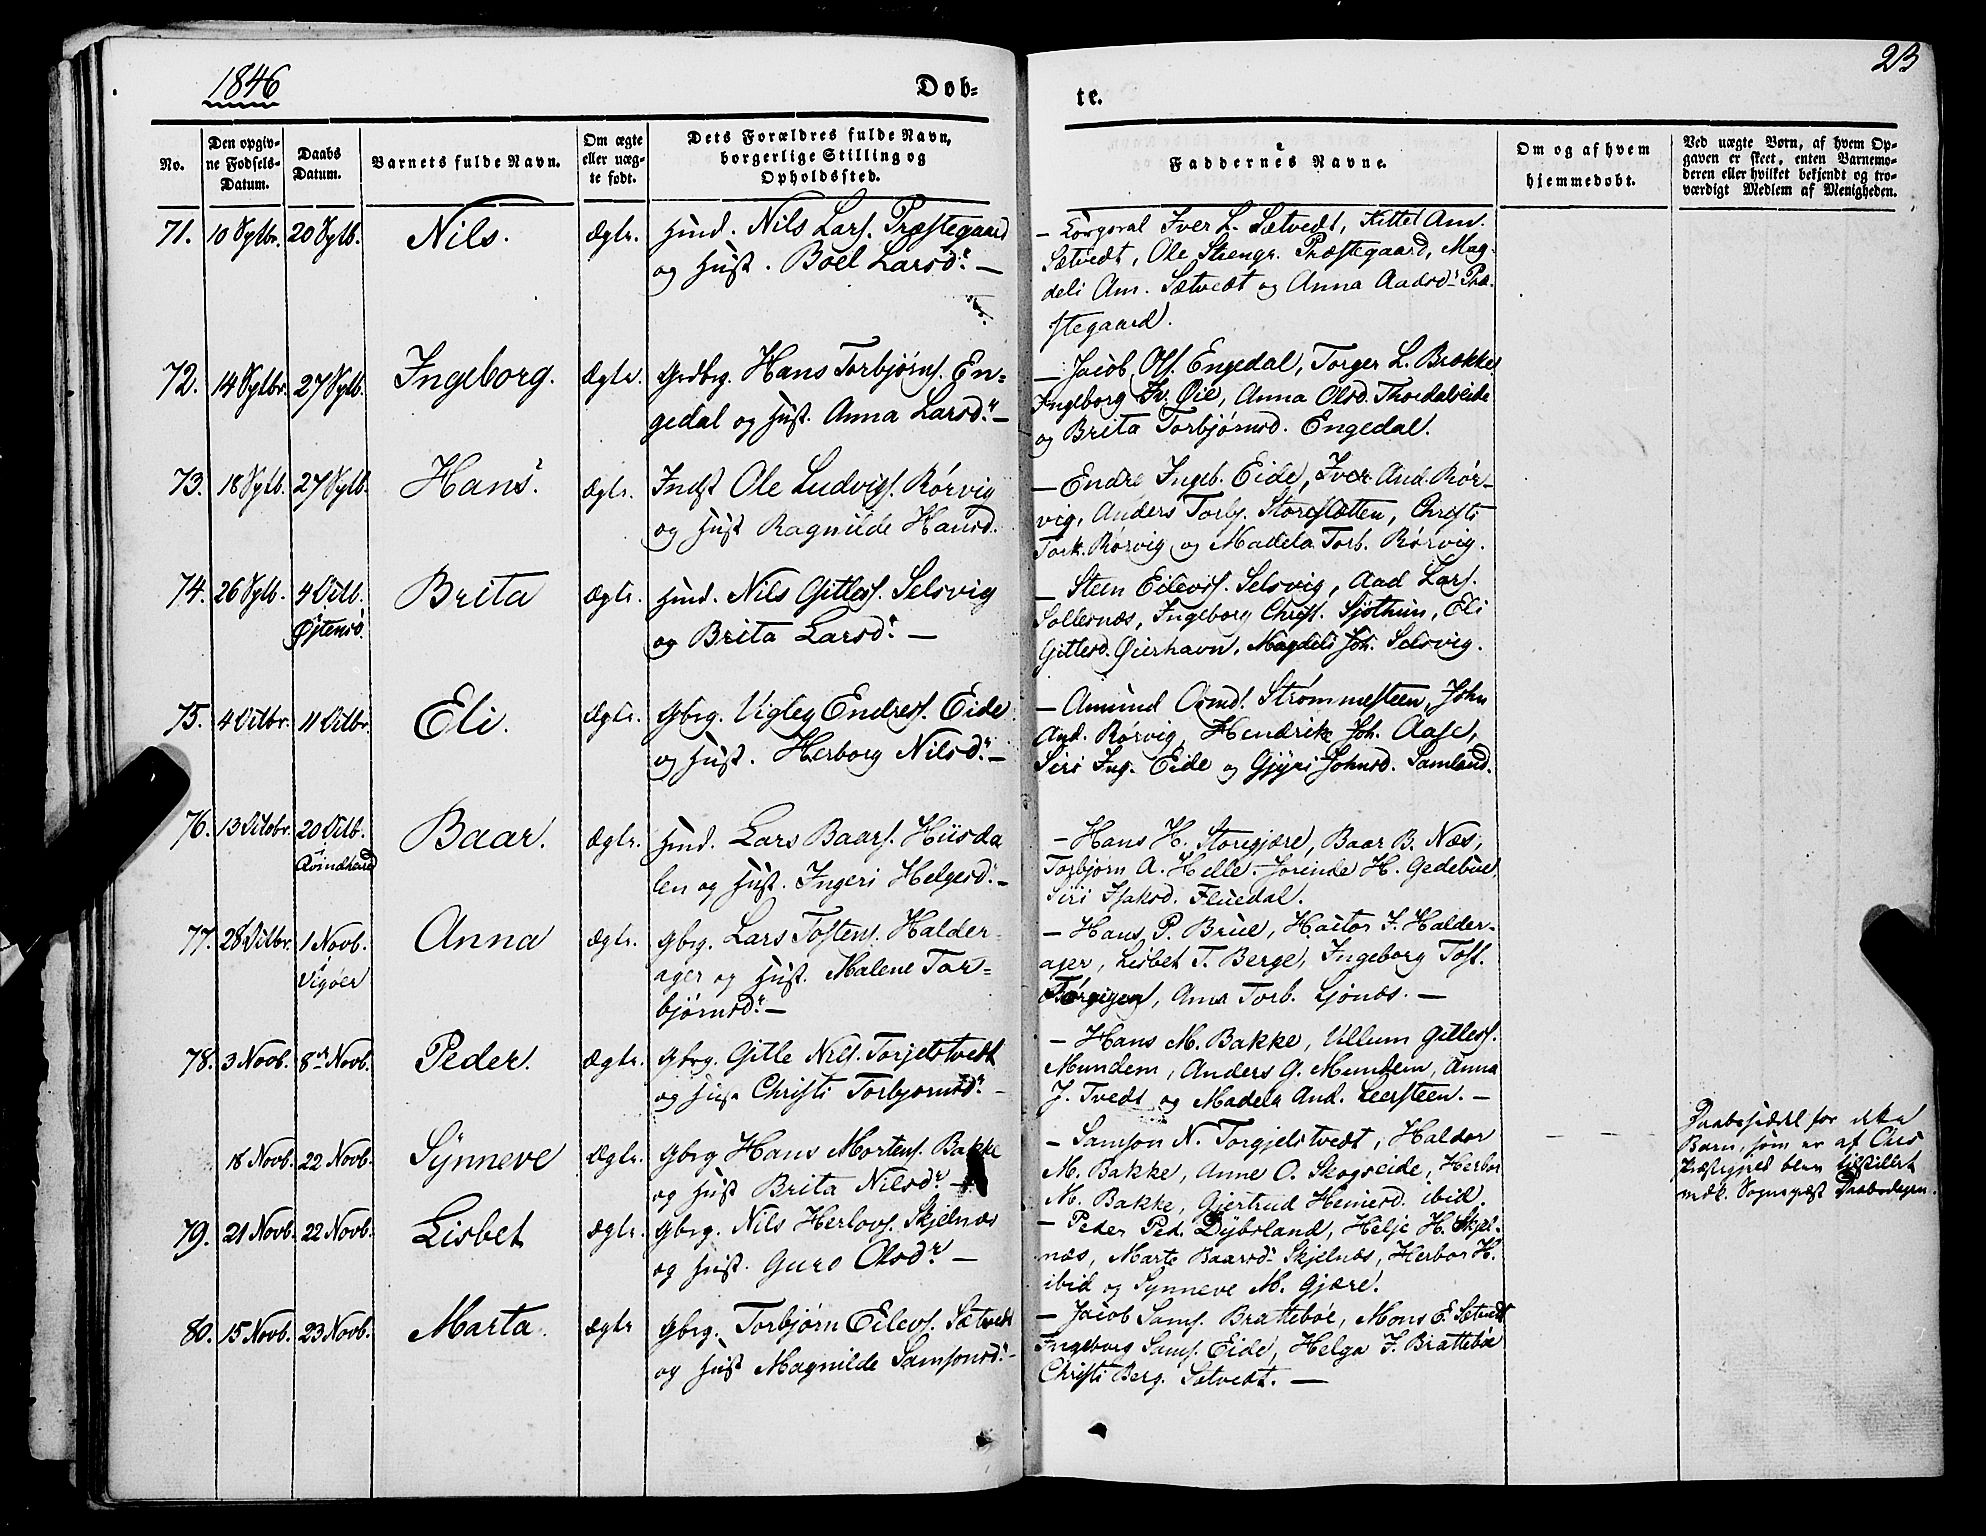 1846
Døb-
te.
23
No.
Den opgiv-
ne Fødsels-
Datum.
Daabs
Datum.
Barnets fulde Navn.
Om ægte
eller uæg-
te født.
Dets Forældres fulde Navn,
borgerlige Stilling og
Opholdssted.
Faddernes Navne.
Om og af hvem
hjemmedøbt.
Ved uægte Børn, af hvem Op-
gaven er skeet, enten Barnemo-
deren eller hvilket bekjendt og tro-
værdigt Medlem af Menigheden.
71. 10 Sptbr. 20 Sptb. Nils. Ægte.
Hmd. Nils Lars. Præstegaard
og Hust. Boel Larsdr. —
— Korporal Iver L. Sætvedt, Kittel Am.
Sætvedt, Ole Steengr. Præstegaard, Mag-
deli Am. Sætvedt og Anna Aadsdr Præ-
stegaard.
72. 14 Sptbr. 27 Sptb. Ingeborg. Ægte.
Grdbrg. Hans Torbjørns. En-
gedal og Hust. Anna Larsdr. —
— Jacob Ols. Engedal, Torger L. Brække
Ingeborg Iv. Øie, Anna Olsd.
og Brita Torbjørnsd. Engedal.
73. 18 Sptb. 27 Sptb. Hans. Ægte.
Indst Ole Ludvigs. Rørvig
og Hust Ragnilde Hansd.
— Endre Ingeb. Eide, Iver And. Rør-
vig, Anders Torbj. Storesletten, Christi
Tork. Rørvig og Madela Torb. Rørvig.
74. 26 Sptb. 4 Octb. Brita Ægte.
Øjtensd.
Hmd. Nils Gitless. Selsvig
og Brita Larsdr. —
— Steen Eilevss. Selsvig, Aad Lars.
Sollesnæs, Ingeborg Christ. Sjothun, Eli
Gitlesd. Øierhavn, Magdeli Joh. Selsvig.
75. 4 Octbr. 11 Octbr. Eli. Ægte.
Gbrg. Vigleg Endres. Eide
og Hust. Herborg Nilsdr. —
— Amund Osmd. Strømmesteen, John
And. Rørvig, Hendrik Joh. Aase,
Siri Ing. Eide og Gjyri Johnsd. Samland.
76. 13 Octobr. 20 Octb. Baar. Ægte.
Hmd. Lars Baars. Huusda
len og Hust. Ingeri Helgesdr. —
— Hans H. Storegjære, Baar B. Næs,
Torbjørn A. Helle. Jorinde H. Gedebue
Siri Isaksd. Fluedal.
77. 28 Octbr. 1 Novb. Anna Ægte.
Vigøer
Gbrg. Lars Tostens. Halder-
ager og Hust. Malene Tor-
bjørnsdr. —
— Hans P. Brue, Haktor J. Halder-
ager, Lisbet T. Berge, Ingeborg Tost.
Ane Torb. Ljonæs. —
78. 3 Novb. 8de Novb. Peder. Ægte.
Gbrg. Gitle Nils. Torjelstvedt
og Hust Christi Torbjørnsdr. —
— Hans M. Bakke, Villum Gitless.
Mundem, Anders G. Mundem, Anna
J. Tvedt og Madela And. Leersteen. —
18 Novb. 22 Novb. Synneve Ægte.
Gbrg Hans Mortens. Bakke
og Hust Brita Nilsdr. —
— Samson N. Torgjelstvedt, Haldor
M. Bakke, Anne O. Skogseide, Herbor
M. Bakke, Gjertrud Heniesd. ibid.
Daabssædel for dette
Barn, som er af Øus
Præstegjeld blev tilstillet
vedk. Sognepræst Daabsdagen.
79. 21 Novb. 22 Novb. Lisbet ægte.
Gbrg. Nils Herlovs. Skjelnæs
og Hust. Guro Olsdr —
— Peder Ped. Dybsland, Helje H. Skjel-
næs, Marte Baarsdr Skjelnæs, Herbor H.
ibid og Synneve M. Gjære.
80. 15 Novb. 23 Novb. Marta. ægte
Gbrg. Torbjørn Eilevs. Sætvedt
og Hust Magnilde Samsonsdr. —
— Jacob Sams. Brattebøe, Mons E. Sætvedt
Ingeborg Sams. Eide, Helga J. Brattebøe
Christi Berg. Sætvedt. —